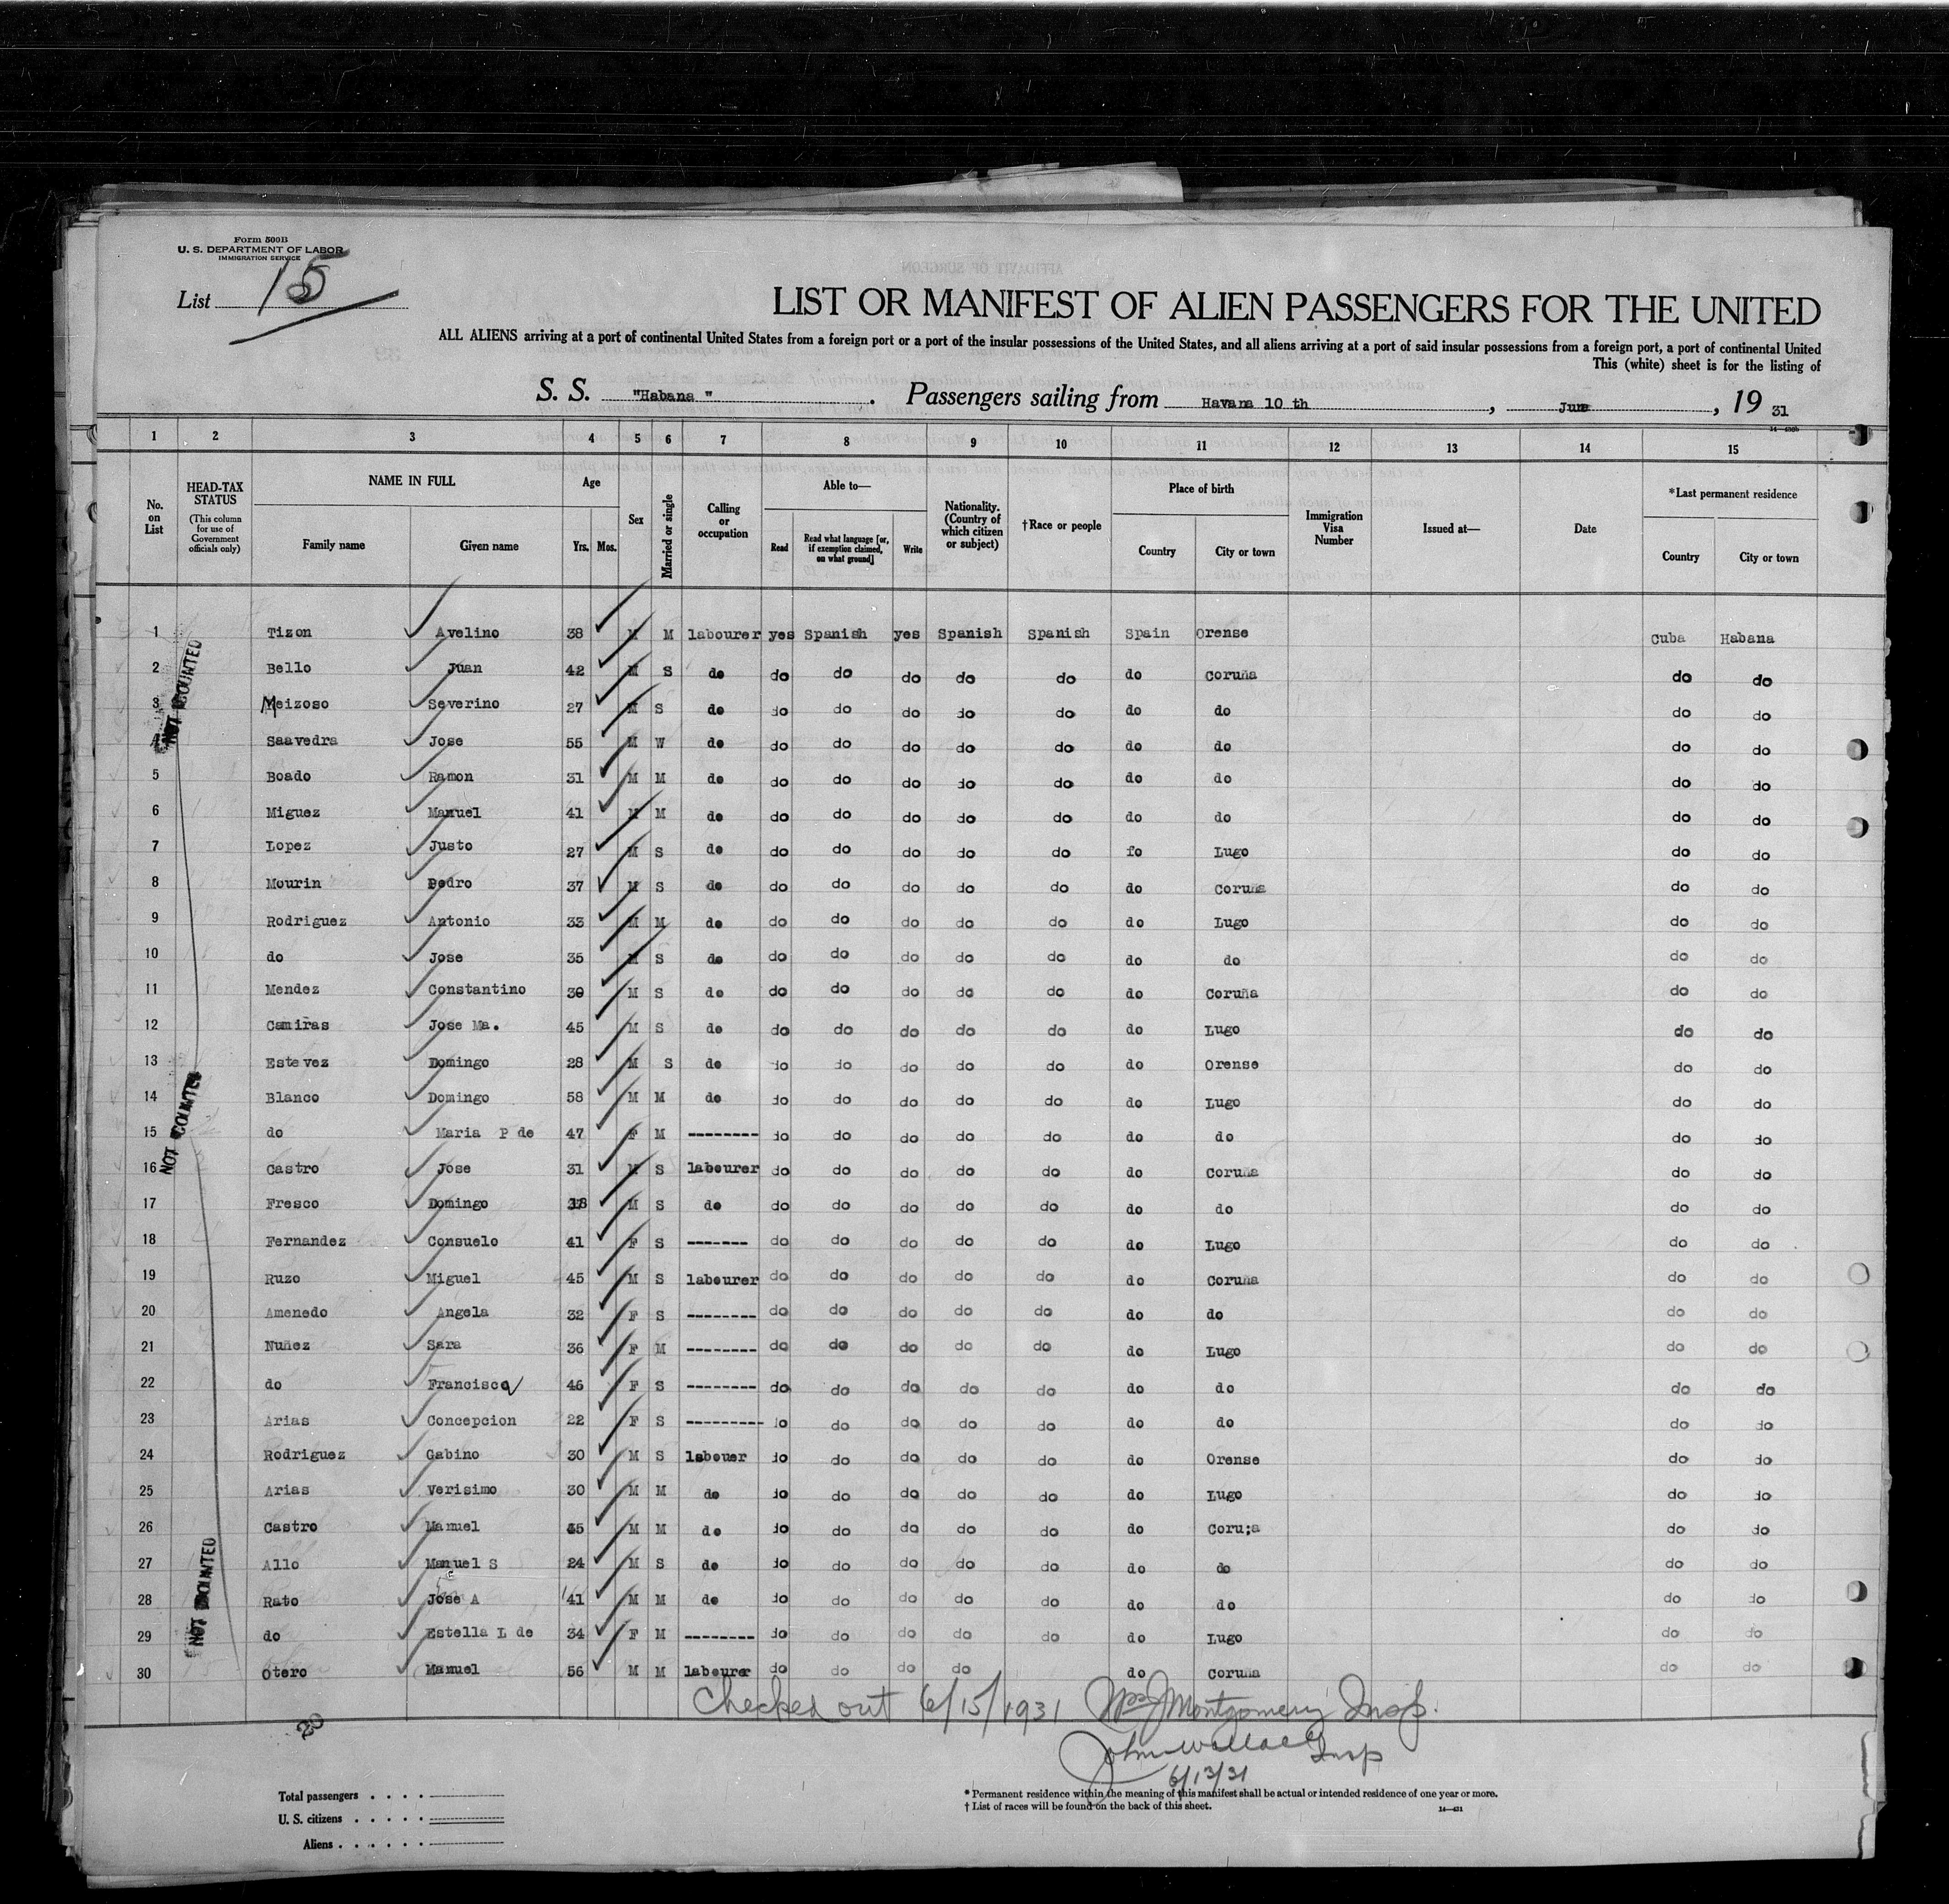 Form 500B
U. S. DEPARTMENT OF LABOR
IMMIGRATION SERVICE
List 15
LIST OR MANIFEST OF ALIEN PASSENGERS FOR THE UNITED
ALL ALIENS arriving at a port of continental United States from a foreign port or a port of the insular possessions of the United States, and all aliens arriving at a port of said insular possessions from a foreign port, a port of continental United
This (white) sheet is for the listing of
S. S. "Habana". Passengers sailing from Havana 10 th, June, 19 31
1 2 3 4 5 6 7 8 9 10 11 12 13 14 15
No. on List
HEAD-TAX STATUS (This column for use of Government officials only)
NAME IN FULL Family name Given name
Age Yrs. Mos.
Sex
Married or single
Calling or occupation
Able to— Read Read what language [or, if exemption claimed, on what ground] Write
Nationality. (Country of which citizen or subject)
†Race or people
Place of birth Country City or town
Immigration Visa Number
Issued at—
Date
*Last permanent residence Country City or town
1 Tizon Avelino 38 M M labourer yes Spanish yes Spanish Spanish Spain Orense Cuba Habana
2 Bello Juan 42 M S do do do do do do do Coruña do do
3 Meizoso Severino 27 M S do do do do do do do do do do
4 Saavedra Jose 55 M W do do do do do do do do do do
5 Boado Ramon 31 M M do do do do do do do do do do
6 Miguez Manuel 41 M M do do do do do do do do do do
7 Lopez Justo 27 M S do do do do do do fo Lugo do do
8 Mourin Pedro 37 M S do do do do do do do Coruña do do
9 Rodriguez Antonio 33 M M do do do do do do do Lugo do do
10 do Jose 35 M S do do do do do do do do do do
11 Mendez Constantino 30 M S do do do do do do do Coruña do do
12 Camiras Jose Ma. 45 M S do do do do do do do Lugo do do
13 Estevez Domingo 28 M S do do do do do do do Orense do do
14 Blanco Domingo 58 M M do do do do do do do Lugo do do
15 do Maria P de 47 F M -------- do do do do do do do do do
16 Castro Jose 31 M S labourer do do do do do do Coruña do do
17 Fresco Domingo M S do do do do do do do do do do
18 Fernandez Consuelo 41 F S ------- do do do do do do Lugo do do
19 Ruzo Miguel 45 M S labourer do do do do do do Coruña do do
20 Amenedo Angela 32 F S -------- do do do do do do do do do
21 Nuñez Sara 36 F M -------- do do do do do do Lugo do do
22 do Francisca 46 F S -------- do do do do do do do do do
23 Arias Concepcion 22 F S --------- do do do do do do do do do
24 Rodriguez Gabino 30 M S labouer do do do do do do Orense do do
25 Arias Verisimo 30 M M do do do do do do do Lugo do do
26 Castro Manuel 45 M M do do do do do do do Coru;a do do
27 Allo Manuel S 24 M S do do do do do do do do do do
28 Rato Jose A 41 M M do do do do do do do do do do
29 do Estella L de 34 F M -------- do do do do do do Lugo do do
30 Otero Manuel 56 M M labourer do do do do do Coruña do do
NOT COUNTED
NOT COUNTED
NOT COUNTED
Checked out 6/15/1931 Wm J Montgomery Insp.
John Wallace Insp
6/13/31
20
Total passengers . . . .
U. S. citizens . . . . .
Aliens . . . . . .
* Permanent residence within the meaning of this manifest shall be actual or intended residence of one year or more.
† List of races will be found on the back of this sheet.